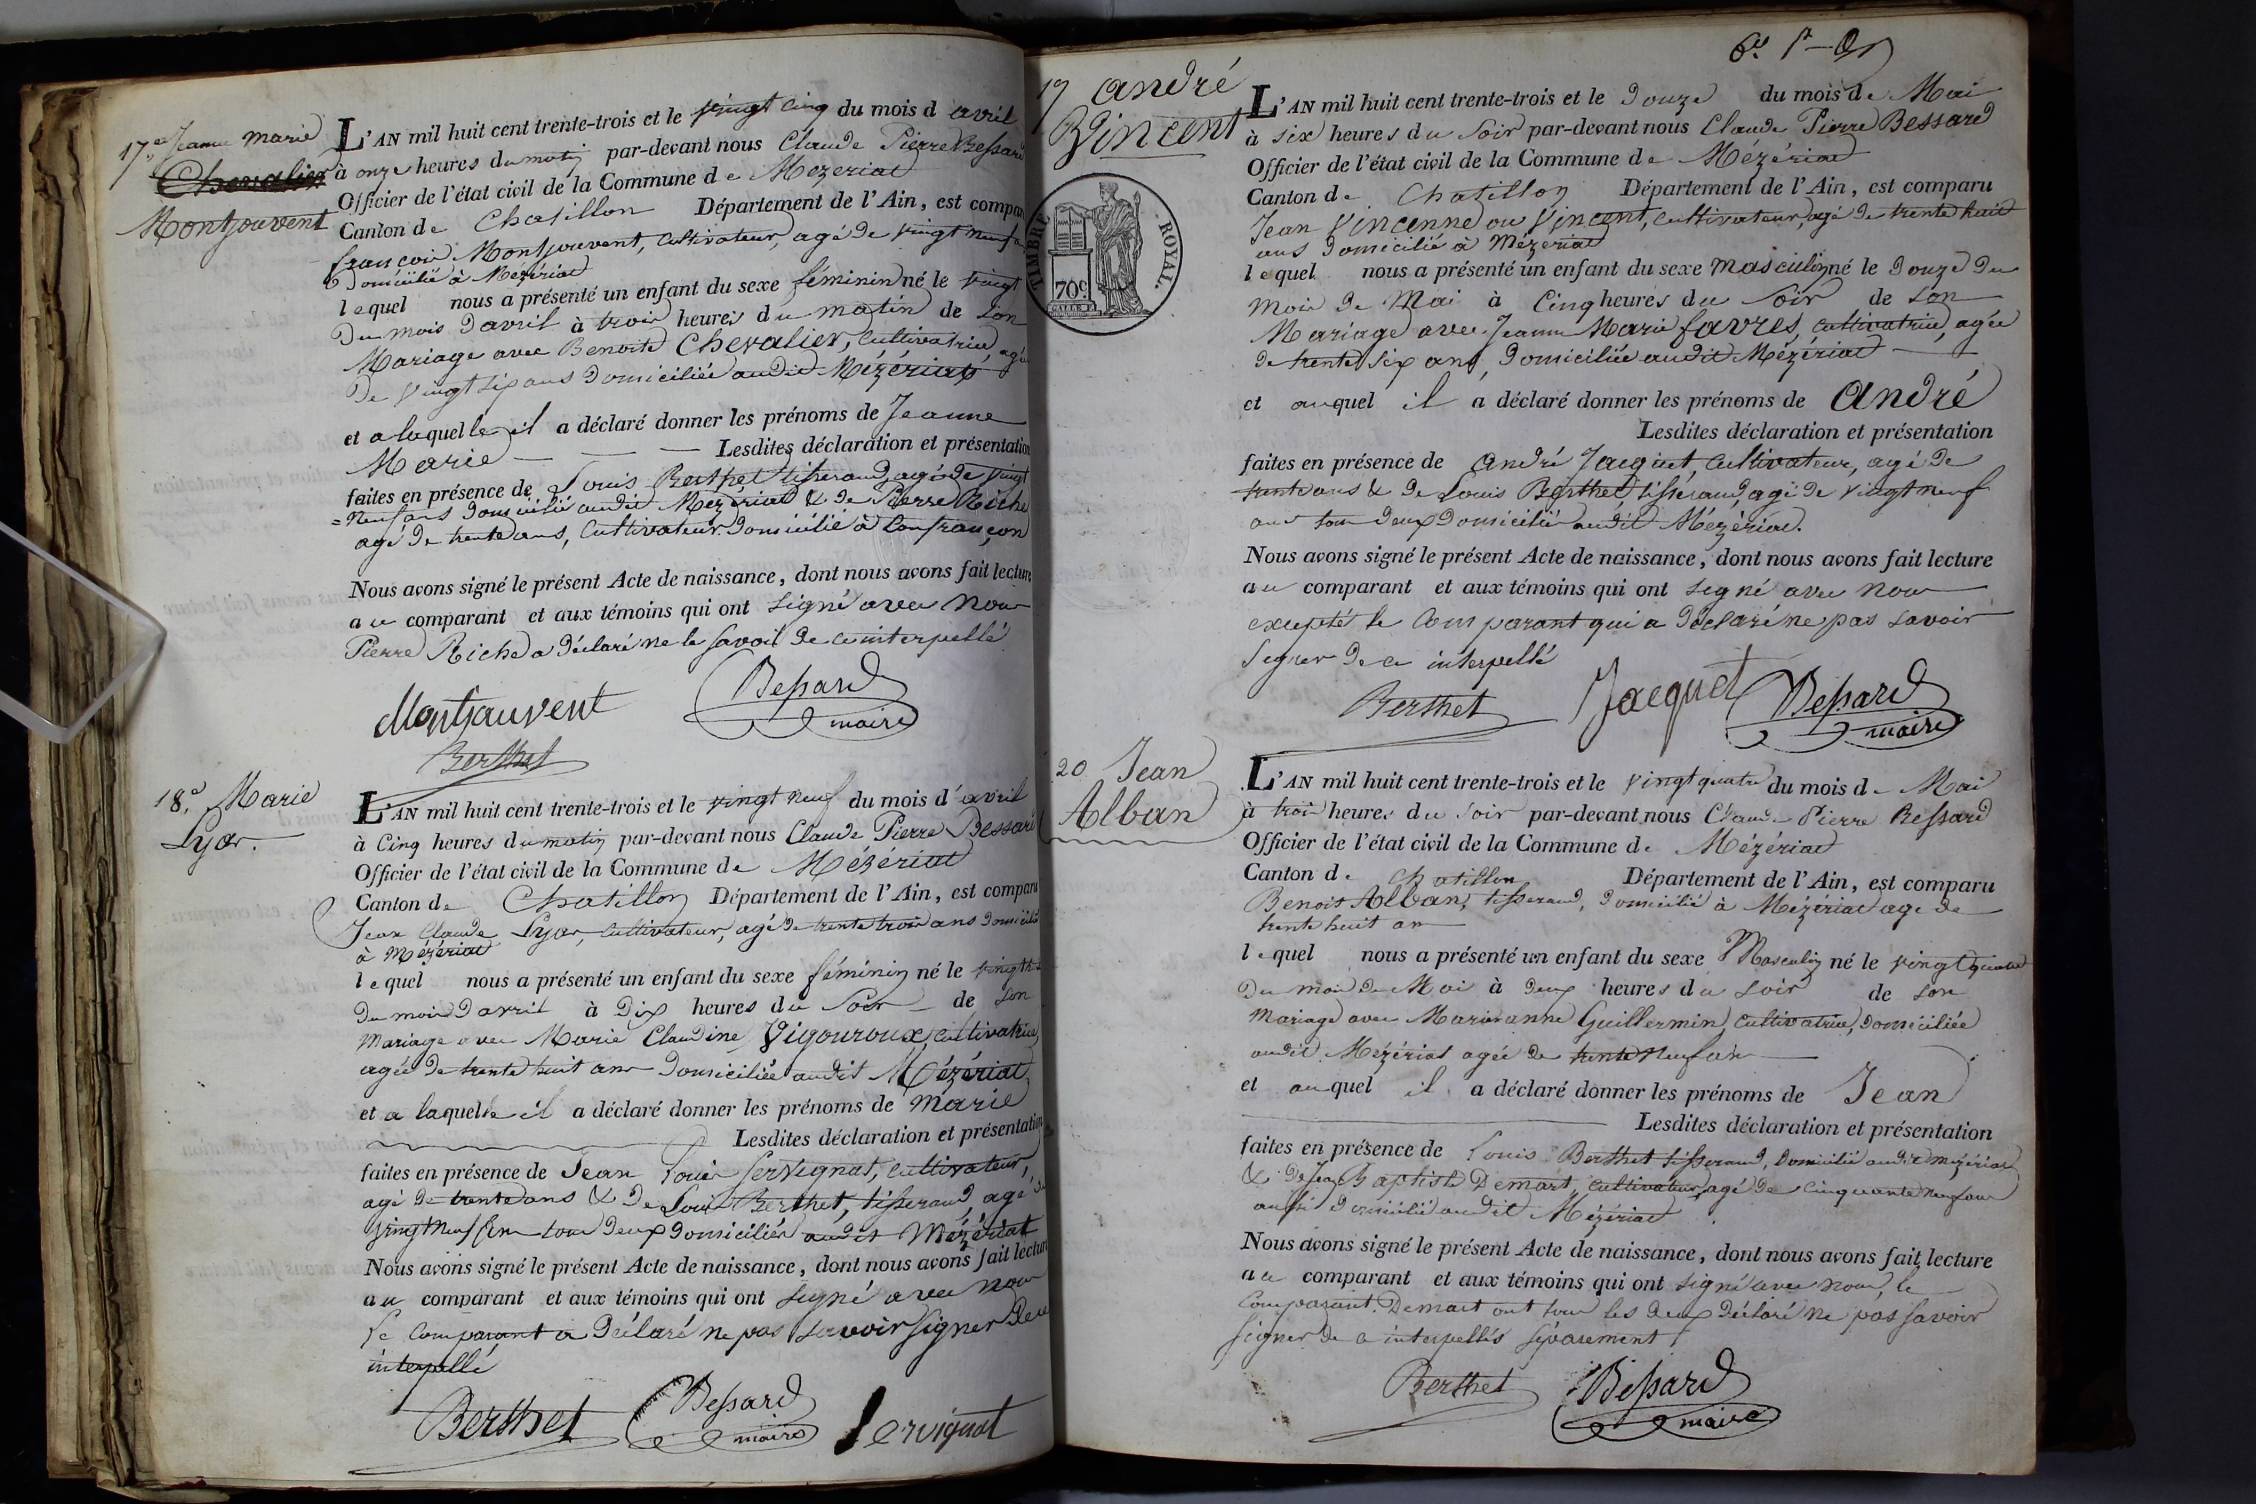 17.e Jeanne Marie
Chevalier
Montjouvent
L'AN mil huit cent trente-trois et le vingt cinq du mois d avril
à onze heures du matin par-devant nous Claude Pierre Bessard
Officier de l'état civil de la Commune de Mézériat
Canton de Chatillon Département de l'Ain, est comparu
françois Montjouvent, Cultivateur, agé de vingt neuf
Domicilié à Mézériat
lequel nous a présenté un enfant du sexe féminin né le vingt
Du mois d'avril à trois heures du matin de son
Mariage avec Benoite Chevalier, Cultivatrice, agée
De vingt six ans Domiciliée audit Mézériat
et a laquelle il a déclaré donner les prénoms de Jeanne
Marie — — — Lesdites déclaration et présentation
faites en présence de Louis Berthet tisserand, agé de vingt
=neuf ans Domicilié audit Mézériat & de Pierre Riche
agé de trente ans, Cultivateur Domicilié à Confrançon
Nous avons signé le présent Acte de naissance, dont nous avons fait lecture
au comparant et aux témoins qui ont signé avec Nous
Pierre Riche a déclaré ne le savoir de ce interpellé
Montjouvent Bessard
maire
Berthet
18.e Marie
Lyar.
L'AN mil huit cent trente-trois et le vingt neuf du mois d'avril
à Cinq heures du matin par-devant nous Claude Pierre Bessard
Officier de l'état civil de la Commune de Mézériat
Canton de Chatillon Département de l'Ain, est comparu
Jean Claude Lyar, Cultivateur, agé de trente trois ans Domicilié
à Mézériat
lequel nous a présenté un enfant du sexe féminin né le vingt
Du mois D'avril à Dix heures du Soir de son
Mariage avec Marie Claudine Vigouroux, Cultivatrice,
agée de trente huit ans Domiciliée audit Mézériat
et a laquelle il a déclaré donner les prénoms de Marie
Lesdites déclaration et présentation
faites en présence de Jean Louis Servignat, Cultivateur,
agé de trente ans & De Louis Berthet, tisserand, agé de
vingt neuf ans tous Deux Domiciliés audit Mézériat
Nous avons signé le présent Acte de naissance, dont nous avons fait lecture
au comparant et aux témoins qui ont signé avec nous
le Comparant a Déclaré ne pas savoir signer De ce
interpellé
Berthet Bessard Servignat
maire
19 André
Vincent
TIMBRE ROYAL.
70c
L'AN mil huit cent trente-trois et le Douze du mois de Mai
à six heures du Soir par-devant nous Claude Pierre Bessard
Officier de l'état civil de la Commune de Mézériat
Canton de Chatillon Département de l'Ain, est comparu
Jean Vincenne ou Vincent, Cultivateur, agé de trente huit
ans Domicilié à Mézériat
lequel nous a présenté un enfant du sexe Masculin né le Douze Du
Mois de Mai à Cinq heures du Soir de son
Mariage avec Jeanne Marie favres, Cultivatrice, agée
de trente six ans, Domiciliée audit Mézériat
et auquel il a déclaré donner les prénoms de André
Lesdites déclaration et présentation
faites en présence de André Jacquet, Cultivateur, agé de
trente ans & de Louis Berthet, tisserand, agé de vingt neuf
ans tous Deux Domiciliés audit Mézériat.
Nous avons signé le présent Acte de naissance, dont nous avons fait lecture
au comparant et aux témoins qui ont signé avec nous
excepté le Comparant qui a Déclaré ne pas savoir
signer De ce interpellé
Berthet Jacquet Bessard
maire
20 Jean
Alban
L'AN mil huit cent trente-trois et le vingt quatre du mois de Mai
à trois heures du Soir par-devant nous Claude Pierre Bessard
Officier de l'état civil de la Commune de Mézériat
Canton de Chatillon Département de l'Ain, est comparu
Benoit Alban, tisserand, Domicilié à Mézériat age de
trente huit ans
lequel nous a présenté un enfant du sexe Masculin né le vingt quatre
Du mois de Mai à Deux heures du soir de son
Mariage avec Marieanne Guillermin, Cultivatrice, Domiciliée
audit Mézériat agée de trente neuf ans
et auquel il a déclaré donner les prénoms de Jean
Lesdites déclaration et présentation
faites en présence de Louis Berthet tisserand, Domicilié audit Mézériat
& de Jean Baptiste Demart, Cultivateur, agé de cinquante neuf ans
aussi Domicilié audit Mézériat
Nous avons signé le présent Acte de naissance, dont nous avons fait lecture
au comparant et aux témoins qui ont signé avec nous, le
Comparant. Demart ont tous les deux Déclaré ne pas savoir
signer de ce interpellés séparement
Berthet Bessard
maire